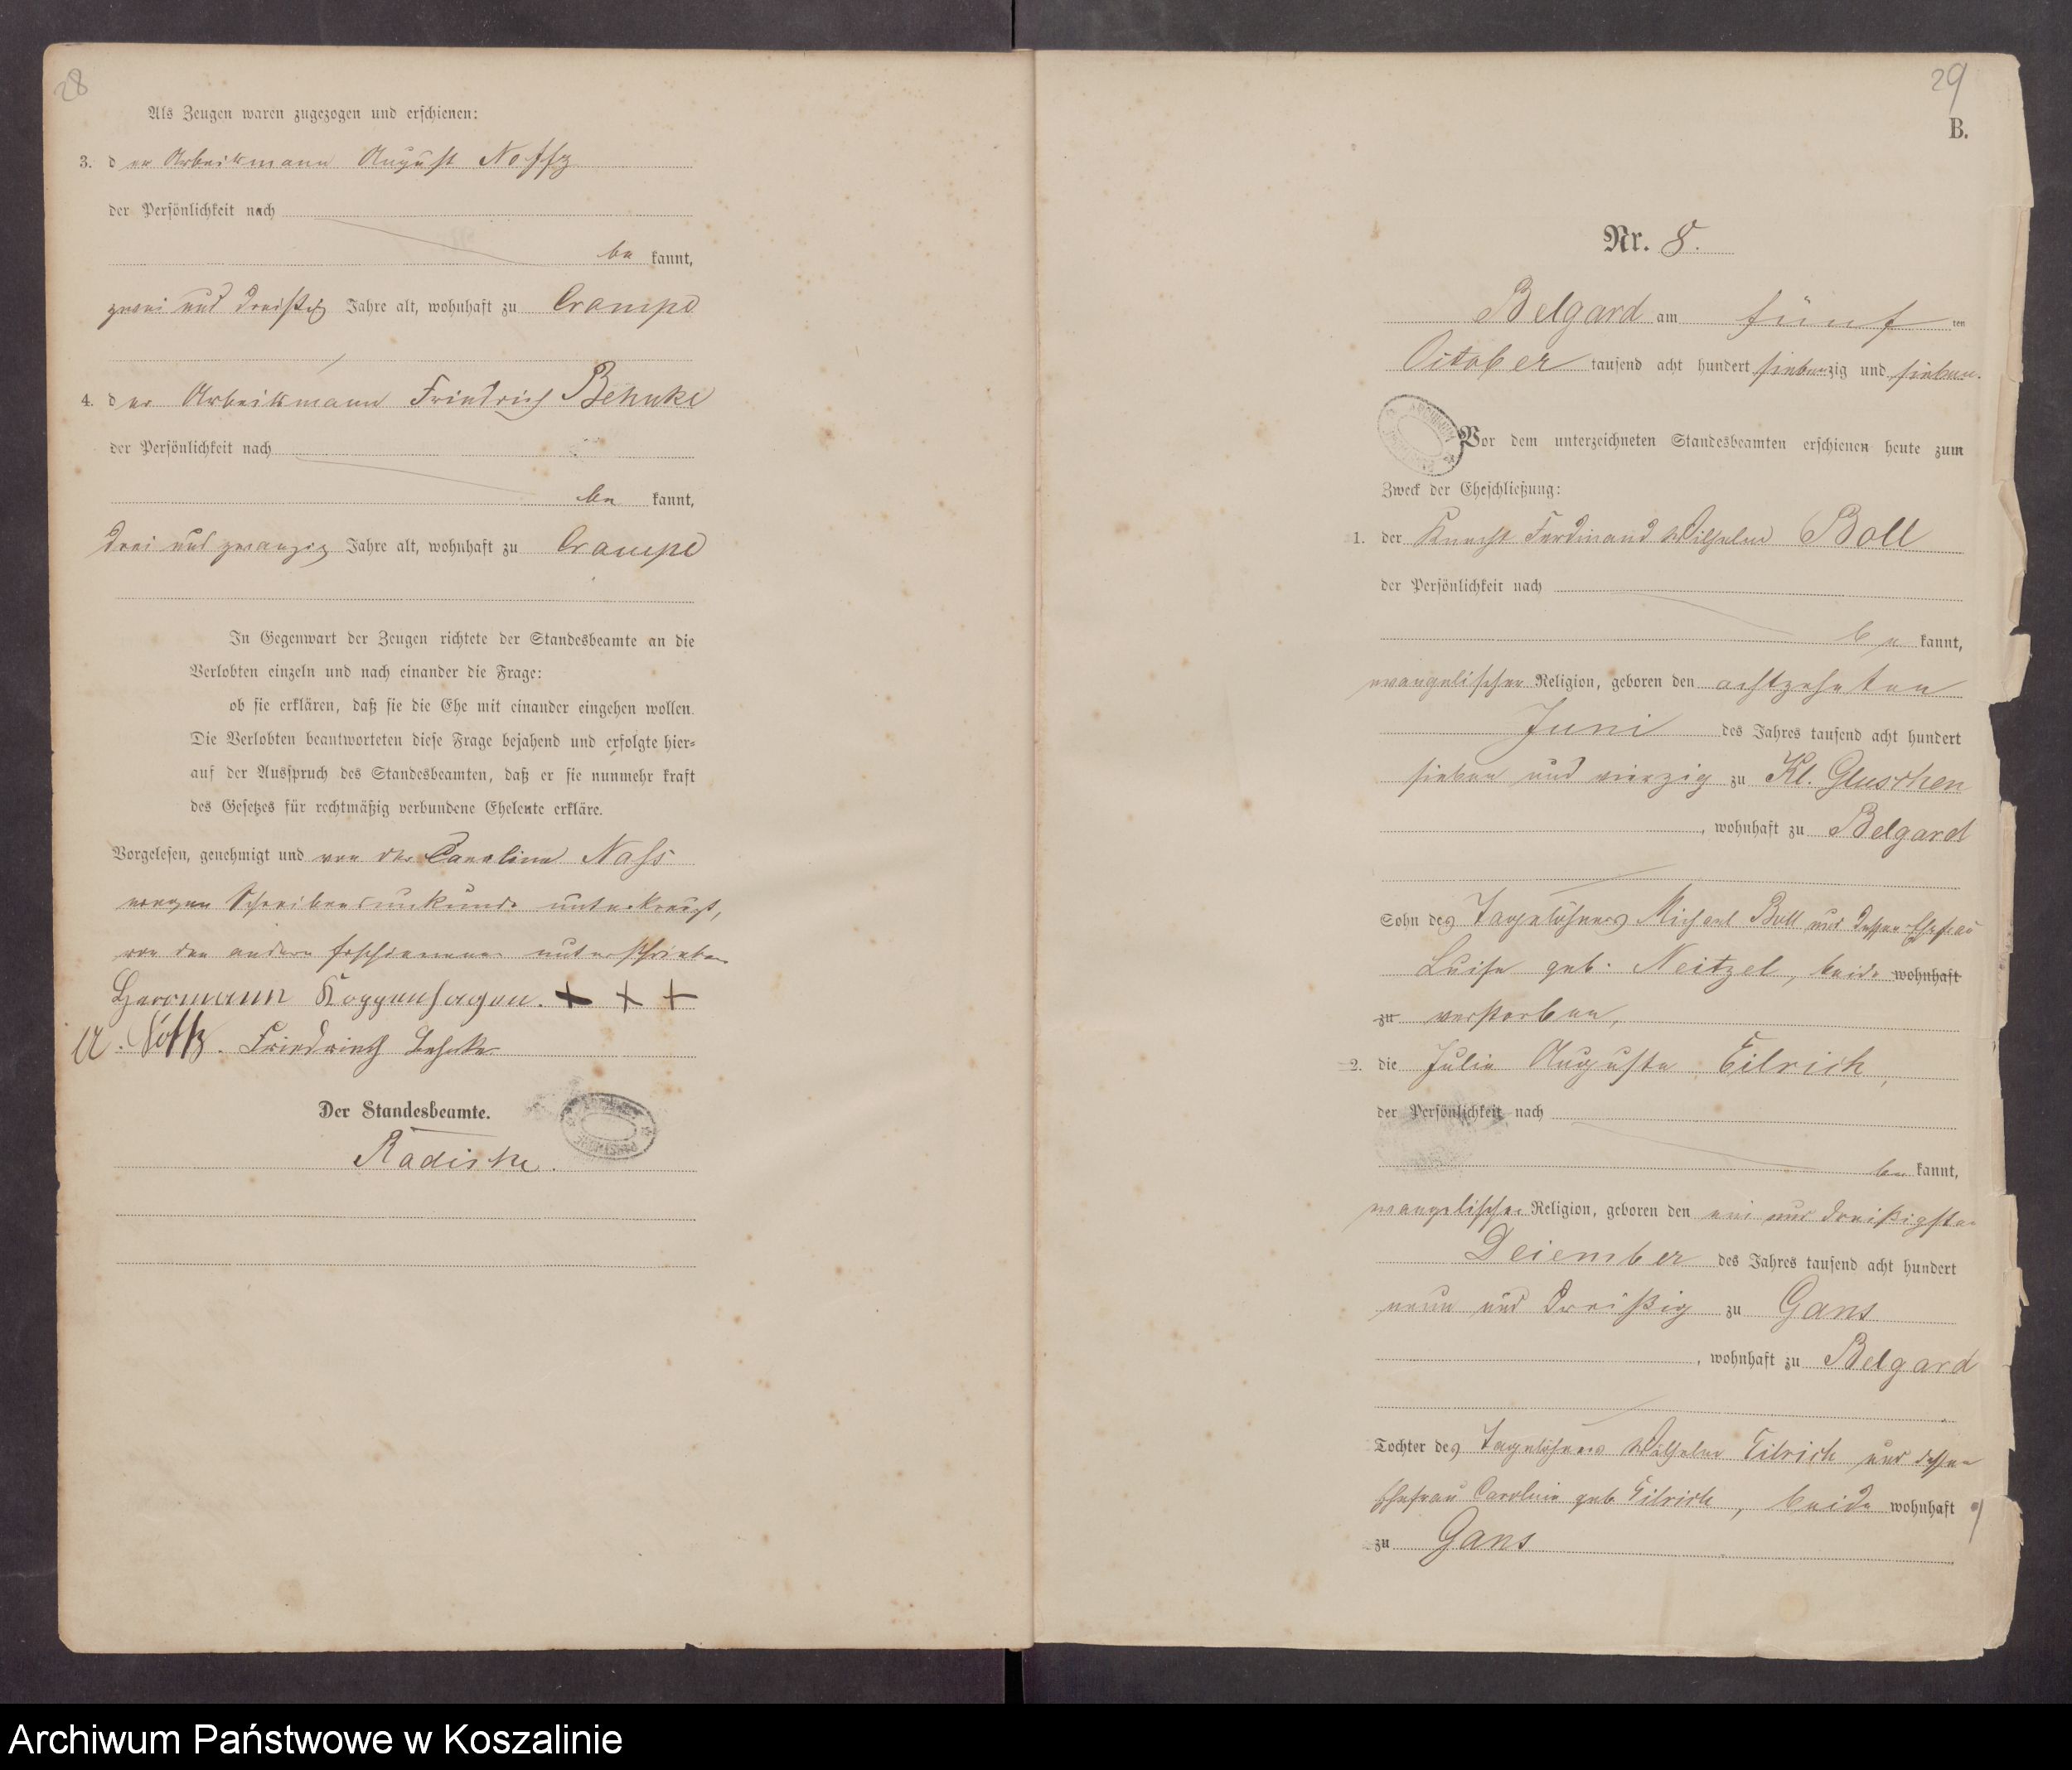 28
Als Zeugen waren zugezogen und erschienen:
3. der Arbeitsmann August Noffz
der Persönlichkeit nach
be kannt,
zwei und dreißig Jahre alt, wohnhaft zu Crampe
4. der Arbeitsmann Friedrich Behnke
der Persönlichkeit nach
be kannt,
drei und zwanzig Jahre alt, wohnhaft zu Crampe
In Gegenwart der Zeugen richtete der Standesbeamte an die
Verlobten einzeln und nach einander die Frage:
ob sie erklären, daß sie die Ehe mit einander eingehen wollen.
Die Verlobten beantworteten diese Frage bejahend und erfolgte hier-
auf der Ausspruch des Standesbeamten, daß er sie nunmehr kraft
des Gesetzes für rechtmäßig verbundene Eheleute erkläre.
Vorgelesen, genehmigt und von der Caroline Nass
wegen Schreibensunkunde unterkreuzt,
von den andern Erschienenen unterschrieben
Herrmann Koggenhagen. + + +
A. Noffz. Friedrich Behnke
Der Standesbeamte.
Radiske.
29
B.
Nr. 8.
Belgard am fünf ten
October tausend acht hundert siebenzig und sieben.
Vor dem unterzeichneten Standesbeamten erschienen heute zum
Zweck der Eheschließung:
1. der Knecht Ferdinand Wilhelm Boll
der Persönlichkeit nach
be kannt,
evangelischer Religion, geboren den achtzehnten
Juni des Jahres tausend acht hundert
sieben und vierzig zu Kl. Gluschen
, wohnhaft zu Belgard
Sohn des Tagelöhners Michael Boll und dessen Ehefrau
Luise geb. Neitzel, beide wohnhaft
zu verstorben,
2. die Julie Auguste Eilrich,
der Persönlichkeit nach
be kannt,
evangelischer Religion, geboren den ein und dreißigsten
Dezember des Jahres tausend acht hundert
neun und dreißig zu Gans
, wohnhaft zu Belgard
Tochter des Tagelöhners Wilhelm Eilrich und dessen
Ehefrau Caroline geb. Eilrich, beide wohnhaft
zu Gans
Archiwum Państwowe w Koszalinie